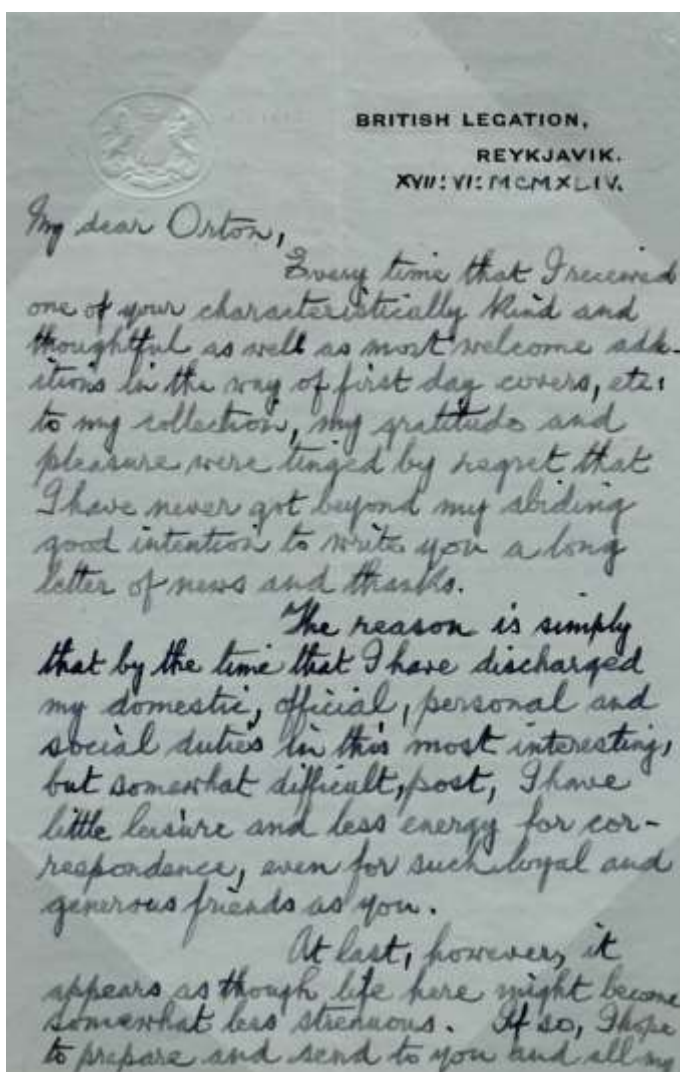 BRITISH LEGATION,
REYKJAVIK.
XVII: VI: MCMXLIV.
My dear Orton,
Every time that I received
one of your characteristically kind and
thoughtful as well as most welcome add-
itions in the way of first day covers, etc:
to my collection, my gratitude and
pleasure were tinged by regret that
I have never got beyond my abiding
good intention to write you a long
letter of news and thanks.
The reason is simply
that by the time that I have discharged
my domestic, official, personal and
social duties in this most interesting,
but somewhat difficult, post, I have
little leisure and less energy for cor-
respondence, even for such loyal and
generous friends as you.
At last, however, it
appears as though life here might become
somewhat less strenuous. If so, I hope
to prepare and send to you and all my